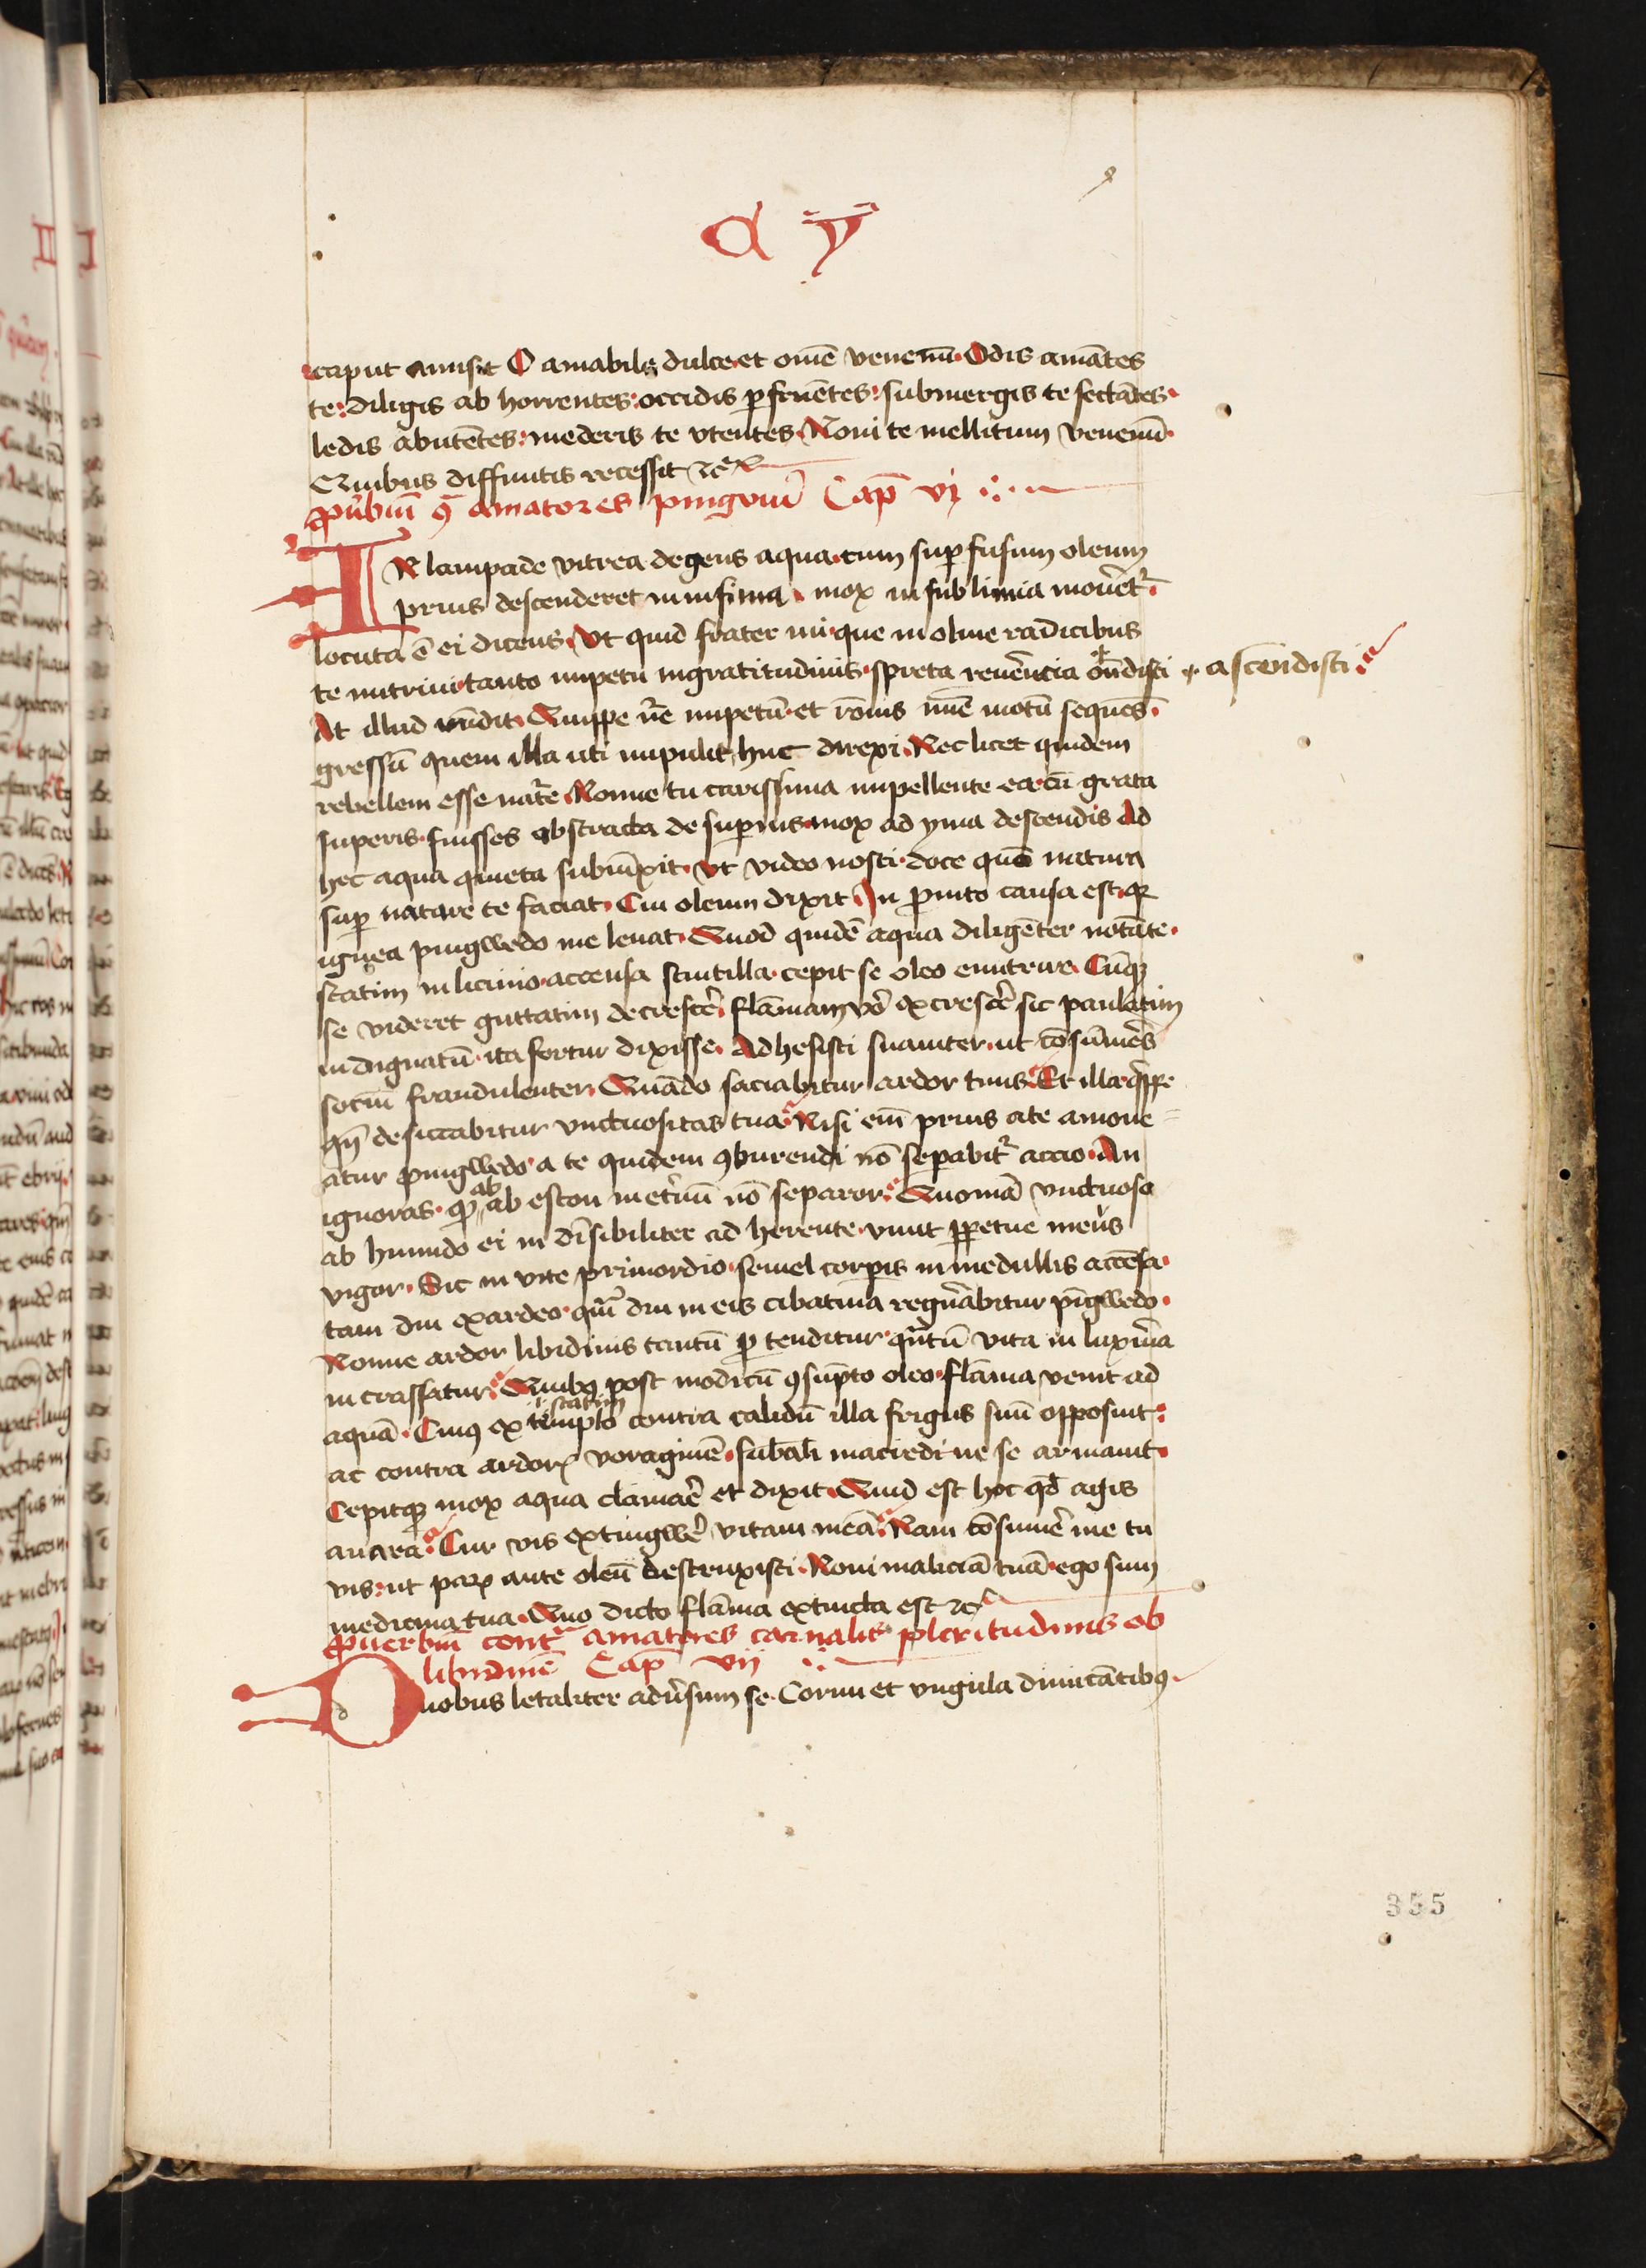 caput amisit O amabile dulce et om̄e venenū. Odis amātes
te: diligis ab horrentes: occidis ꝑfruētes: submergis te sectātes.
ledis abutētes: mederis te vtentes. Noui te mellitum venenū.
Quibus diffinitis recessit
amatores pingwiū Cap̄ vj
IN lampade vitrea degens aqua. cum suꝑfusum oleum
prius descenderet in infima. mox in sublimia mouēt᷑.
locuta ē ei dicens. Vt quid frater mi. que in oliue radicibus
te nutriui. tanto impetu ingratitudinis. spreta reuerēcia on̄disti + ascendisti
At illud rn̄dit. Quippe nr̄e impetū. et rōnis motū sequēs.
gressū quem illa uti impulit, huc direxi. Nec licet quidem
rebellem esse nat̄e. Nonne tu carissima impellente ea. cū grata
superis. fuisses abstracta de superius. mox ad yma descendis Ad
hec aqua quieta subiūxit. Vt video nosti. doce quō natura
suꝑ natare te faciat. Cui oleum dixit. In promto causa est. qꝛ
ignea pingwedo me leuat. Quod quidē aqua diligēter notāte.
statim in licinio. accensa scintilla. cepit se oleo enutrire. Cūqꝫ
se videret guttatim decrescē̉. flāmam vō excrescē̉ sic paulatim
indignatū. ita fertur dixisse. Adhesisti suauiter. ut cōsūmēs
sociū fraudulenter. Quādo saciabitur ardor tuus. Et illa. qͥppe
qn̄ desiccabitur vnctuositas tua. Nisi em̄ prius a te amoue
atur pingwedo. a te quidem ꝯburendi nō sepabit᷑ accio. An
ignoras. qꝫ ab ab escon inet̄nū nō separor. Quoniā vnctuoso
ab humido ei in diuīsibiliter ad herente. viuit ꝑpetue meus
vigor. Sic in vite primordio. semel corꝑis in medullis accēsa.
tam diu exardeo. qm̄ diu in eis cibatiua regnabitur pīgwedo.
Nonne ardor libidinis tantū ꝓtenditur. qn̄tū vita in luxuria
in crassatur. Quibꝰ post modicū ꝯsūpto oleo. flāma venit ad
aquā. Cuiꝰ ex templo .i. statim contra calidū illa frigus suū opposuit.
ac contra ardorꝭ voraginē. se armauit.
Cepitqꝫ mox aqua clamaē̉ et dixit. Quid est hoc qd̄ agis
auara. Cur vis extingwē̉ vitam meā. Nam cōsumē̉ me tu
vis. ut parꝫ ante oleū destruxisti. Noui maliciā tuā. ego sum
medicina tua. Quo dicto flāma extincta est
Prouerbiū cont᷑ amatores carnalis pulcritudinis ob
libidinē Cap̄ vij
Duobus letaliter adūsum se. Cornu et vngula dimicātibꝰ.
355